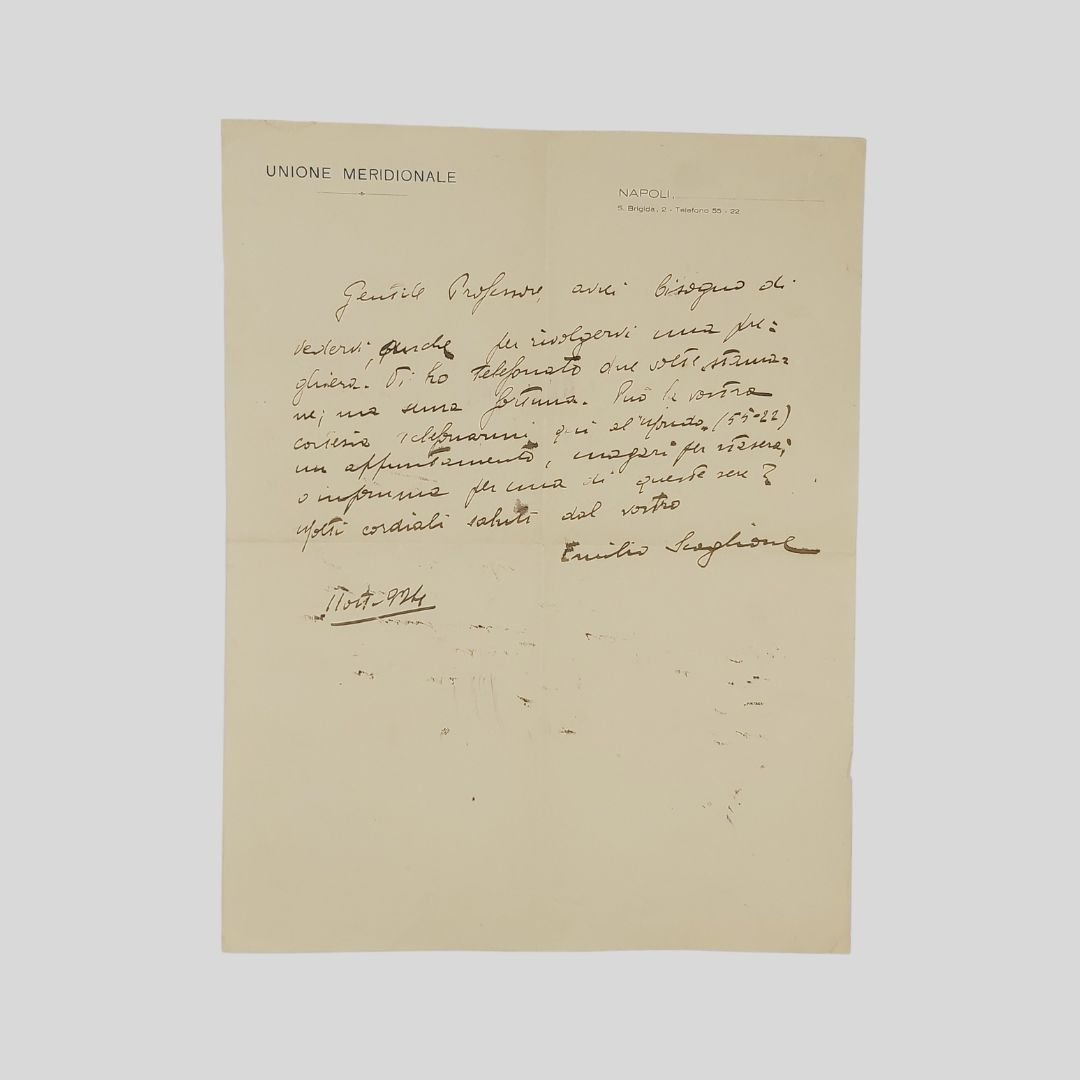 UNIONE MERIDIONALE
NAPOLI,
S. Brigida, 2 - Telefono 55 - 22
Gentile Professore, avrei bisogno di
vedervi, anche per rivolgervi una pre=
ghiera. Vi ho telefonato due volte stama=
ne; ma senza fortuna. Può la vostra
cortesia telefonarmi qui al "Mondo" (55-22)
un appuntamento, magari per stasera;
o insomma per una di queste sere?
Molti cordiali saluti dal vostro
Emilio Scaglione
11 ott. 924